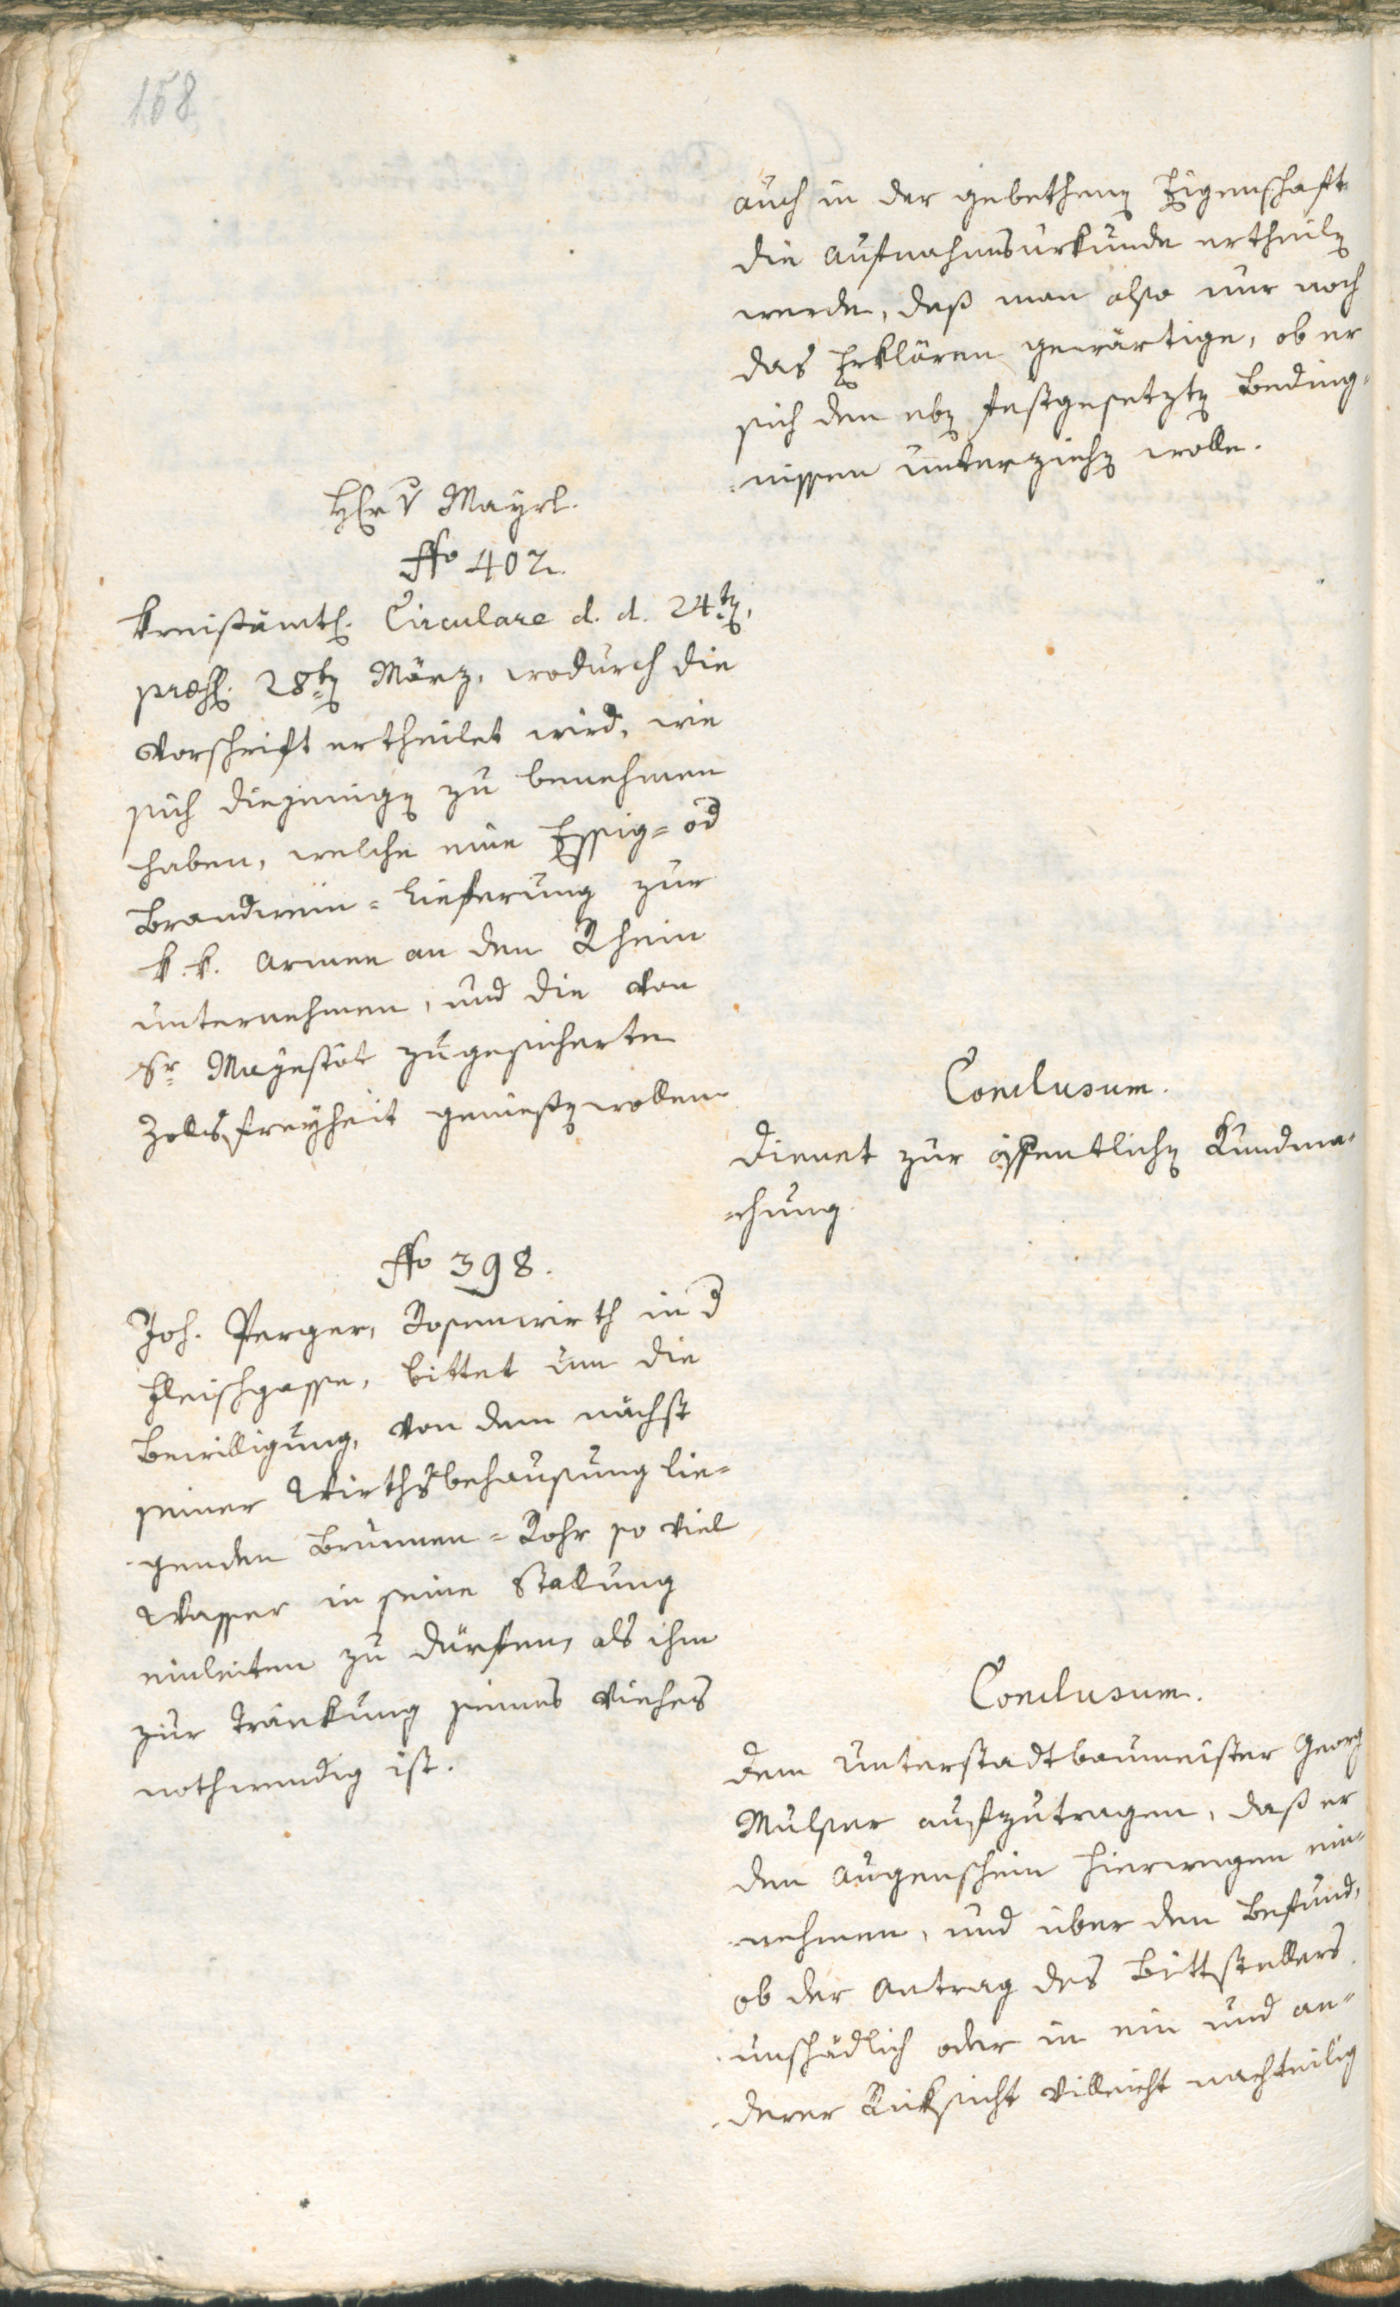 158
auch in der gebethenen Eigenschaft
die Aufnahmsurkunde ertheilen
werde, daß man also nur noch
das Erklären gewärtige, ob er
sich den eben festgesetzten Beding=
nissen unterziehen wolle.
Hr v Mayrl.
No 402.
Kreisämtl. Circulare d. d. 24ten,
præs. 28ten März, wodurch die
Vorschrift ertheilet wird, wie
sich diejenigen zu benehmen
haben, welche eine Essig= od
Brandwein=Lieferung zur
k. k. Armee an den Rhein
unternehmen, und die von
Sr Mayestät zugesicherte
Zollsfreyheit genießen wollen
Conclusum.
Dienet zur öffentlichen Kundma=
=chung.
No 398.
Joh. Perger, Rosenwirth in d
Fleischgasse, bittet um die
Bewilligung, von dem nächst
seiner Wirthsbehausung lie=
genden Brunnen=Rohr so viel
Wasser in seine Stallung
einleiten zu dürfen, als ihm
zur Tränkung seines Viehes
nothwendig ist.
Conclusum.
Dem Unterstadtbaumeister Georg
Mulser aufzutragen, daß er
den Augenschein hierwegen ein=
nehmen, und über den Befund,
ob der Antrag des Bittstellers
unschädlich oder in ein und an=
derer Rücksicht villeicht nachteilig